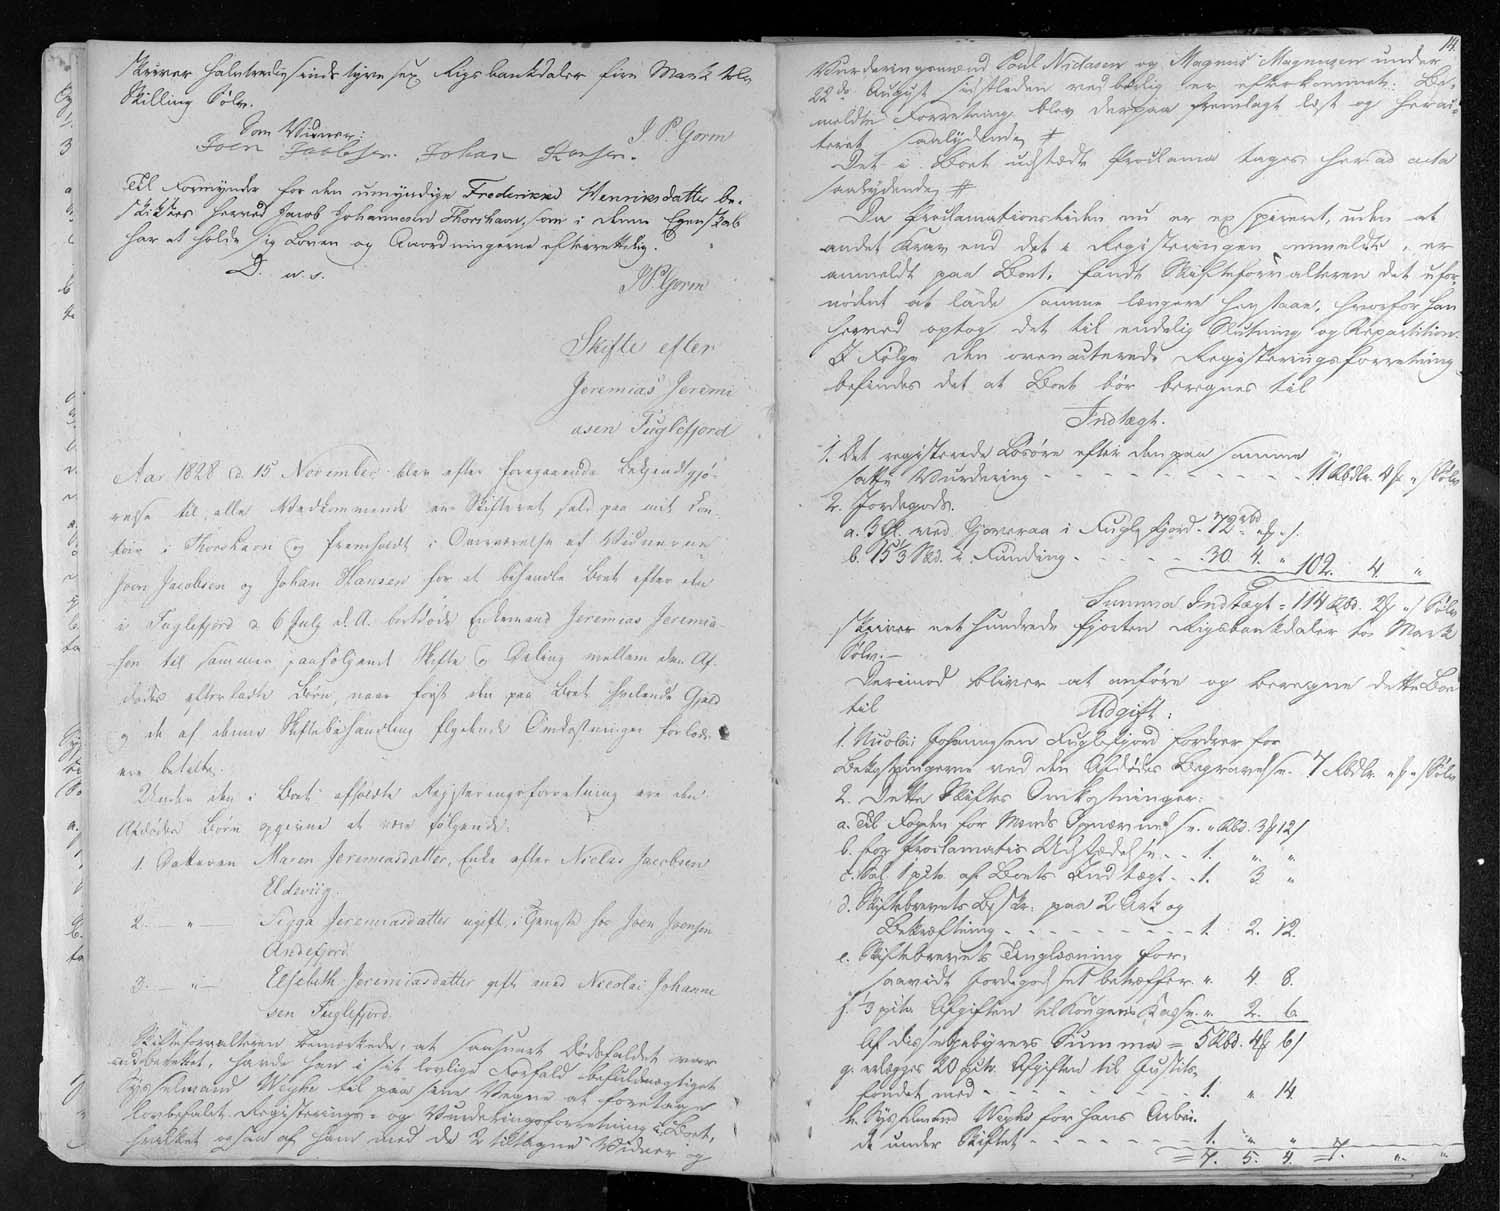 skriver halvtredsindstyve sex Rigsbankdaler fire Mark tolv
Skilling Sølv.
Som Vidner:
J P. Gorm
Joen Jacobsen. Johan Hansen.
Til Formynder for den umyndige Frederikke Henriksdatter be-
skikkes herved Jacob Johannesen Thorshavn, som i denne Egenskab
har at holde sig Loven og Anordningerne efterrettelig.
D. u. s.
J P. Gorm
Skifte efter
Jeremias Jeremi
asen Fuglefjord
Aar 1828 d. 15 November blev efter foregaaende Bekjendtgjø-
relse til alle Vedkommende en Skifteret sat paa mit Con-
toir i Thorshavn og fremholdt i Overværelse af Vidnerne
Joen Jacobsen og Johan Hansen for at behandle Boet efter den
i Fuglefjord d. 6 July d. A. bortdøde Enkemand Jeremias Jeremia-
sen til sammes paafølgende Skifte og Deling mellem den Af-
dødes efterladte Børn, naar først den paa Boet hvilende Gjæld
og de af denne Skiftebehandling flydende Omkostninger forlods
ere betalte.
Under den i Boet afholdte Registeringsforretning ere den
Afdødes Børn opgivne at være følgende:
1. Datteren Maren Jeremiasdatter, Enke efter Niclas Jacobsen
Eldeviig.
2. — " — Sigga Jeremiasdatter ugift, i Tjeneste hos Joen Joensen
Andefjord.
3. — " — Elsebeth Jeremiasdatter gift med Nicolai Johanne
sen Fuglefjord.
Skifteforvalteren bemærkede, at saasnart Dødsfaldet var
indberettet, havde han i sit lovlige Forfald befuldmægtiget
Sysselmand Weyhe til paa sine Vegne at foretage
lovbefalet Registerings- og Vurderingsforretning i Boet,
hvilket ogsaa af ham med de 2 tiltagne Vidner og
14.
Vurderingsmænd Poul Niclasen og Magnus Magnusen under
22de August sidstleden vedbørlig er efterkommet. Be-
meldte Forretning blev derpaa fremlagt læst og herai-
teret saalydende #
Det i Boet udstædte Proclama tages her ad acta
saalydende #
Da Proclamationstiden nu er exspireret, uden at
andet Krav end det i Registeringen anmeldte, er
anmeldt paa Boet, fandt Skifteforvalteren det ufor-
nødent at lade samme længere henstaae, hvorfor han
herved optog det til endelig Slutning og Repartition.
I Følge den ovenacterede Registeringsforretning
befindes det at Boet bør beregnes til
Indtægt.
1. Det registerede Løsøre efter den paa samme
satte Vurdering - - - - - - - - - 11 Rbdlr. 4 ƒ " s Sølv
2. Jordegods.
a. 3 Gl. ved Gjøveraa i Fuglefjord. 72 rbd " ƒ " s.
b. 15 1/3 Skd. i Funding - - - - 30. 4. " 102. 4. "
Summa Indtægt = 114 Rbd. 2 ƒ " s Sølv
skriver eet hundrede fjorten Rigsbankdaler to Mark
Sølv. —
Derimod bliver at anføre og beregne dette Boe
til
Udgift:
1. Nicolai Johannesen Fuglefjord fordrer for
Bekostningerne ved den Afdødes Begravelse. 7 Rbdlr. " ƒ " s Sølv
2. Dette Skiftes Omkostninger:
a. Til Fogden for Mænds Opnævnelse. " Rbd. 3 ƒ 12 s
b. for Proclamatis Udstædelse - - 1. " "
c. Sal. 1 pCto. af Boets Indtægt - - 1. 3. "
d. Skiftebrevets Beskr: paa 2 Ark og
Bekræftning - - - - - - - - - 1. 2. 12.
e. Skiftebrevets Tinglæsning for-
saavidt Jordegodset betræffer " 4. 8.
f. 1/3 pCto. Afgiften til Kongens Kasse. " 2. 6.
Af disse Gebyrers Summa = 5 Rbd. 4 ƒ 6 s
g. erlægges 20 pCto. Afgiften til Justits-
fondet med - - - - - - - - - 1. " 14.
h. Sysselmand Weyhe for hans Arbei-
de under Skiftet - - - - - - - 1. " "
= 7. 5. 4. = 7. " "